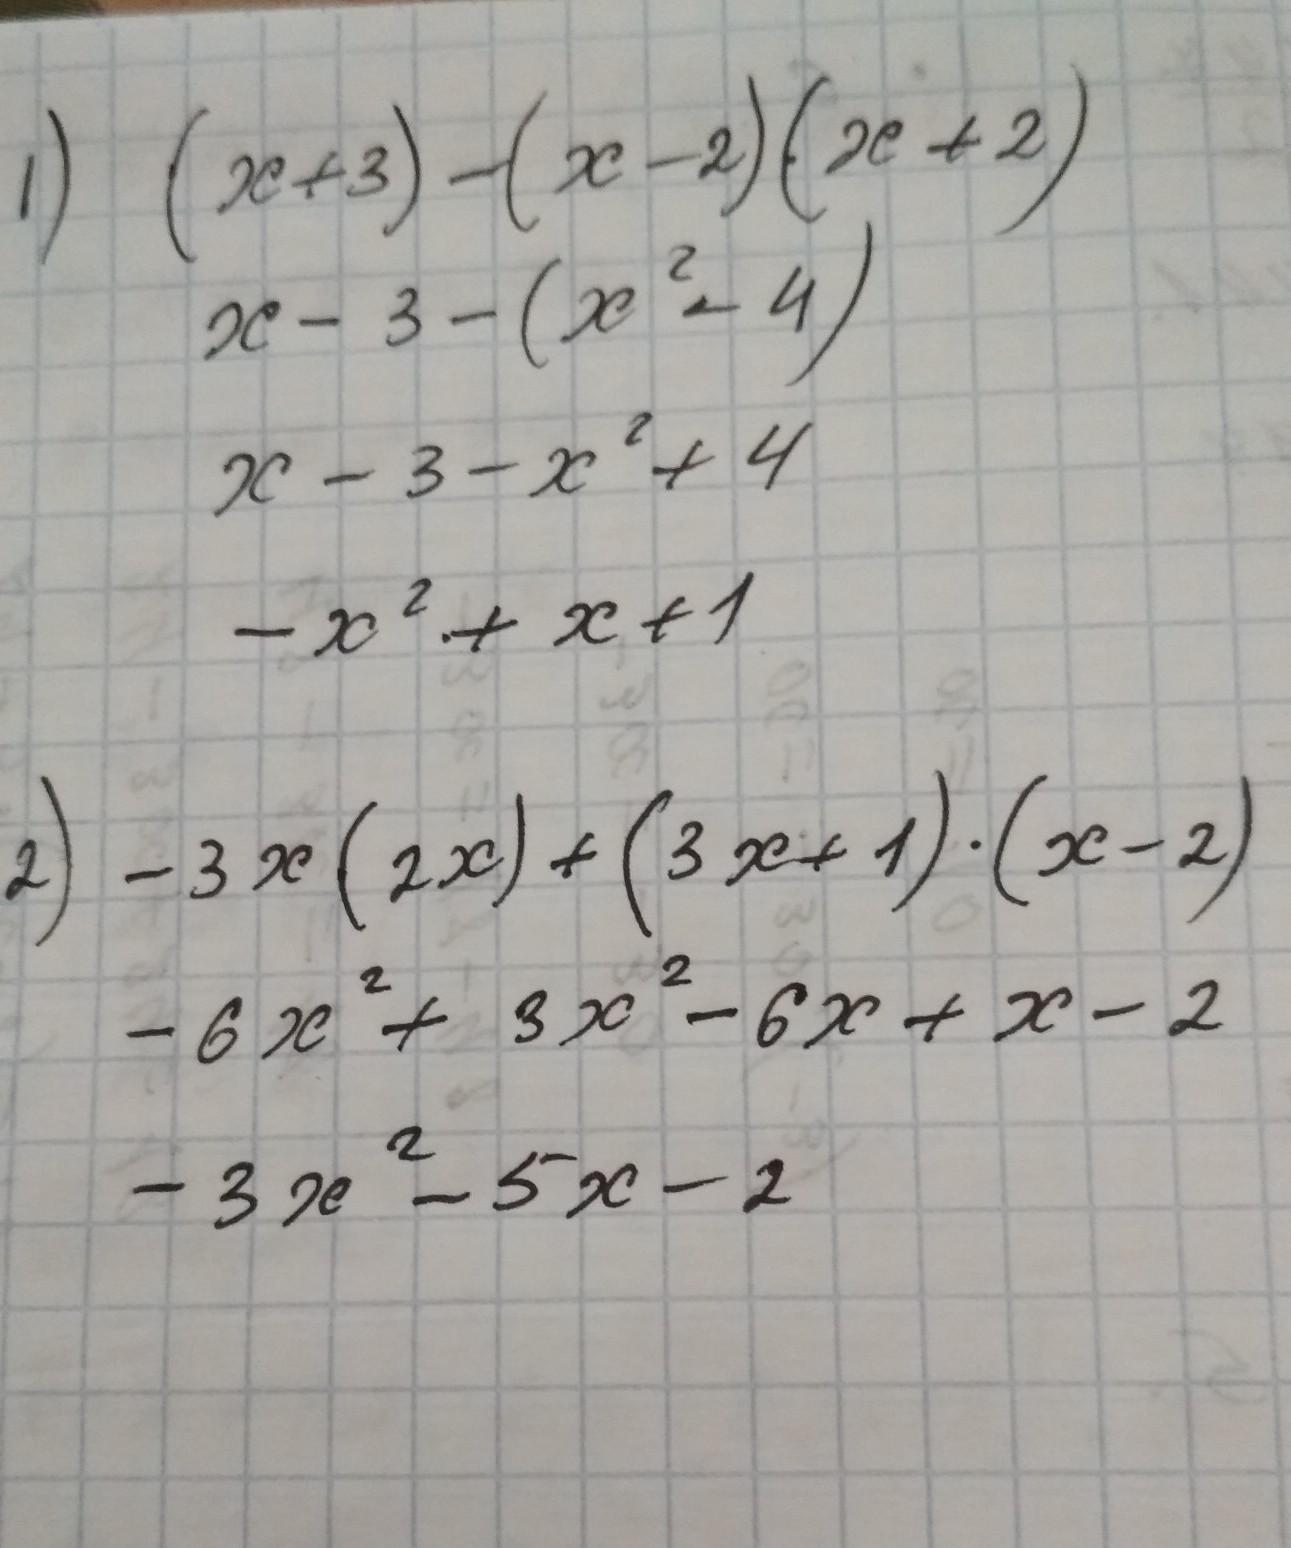 1) (x+3)-(x-2)(x+2)
x-3-(x²-4)
x-3-x²+4
-x²+x+1
2) -3x(2x)+(3x+1)·(x-2)
-6x²+3x²-6x+x-2
-3x²-5x-2